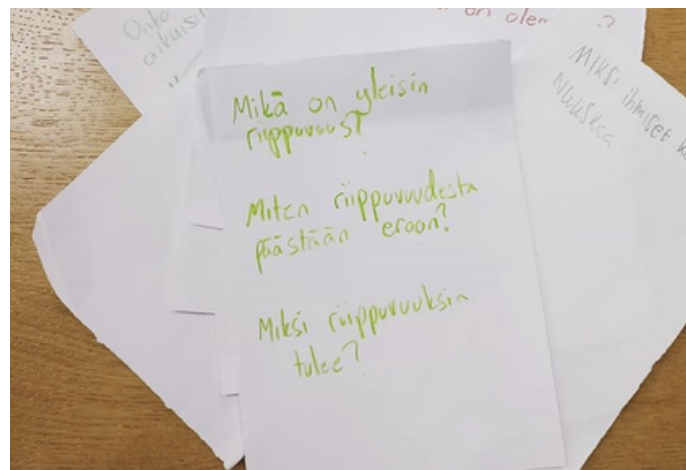 Onko
aikuisi
on olem ?
Miksi ihmiset k
Nuuskaa
Mikä on yleisin
riippuvuus?
Miten riippuvuudesta
päästään eroon?
Miksi riippuvuuksia
tulee?